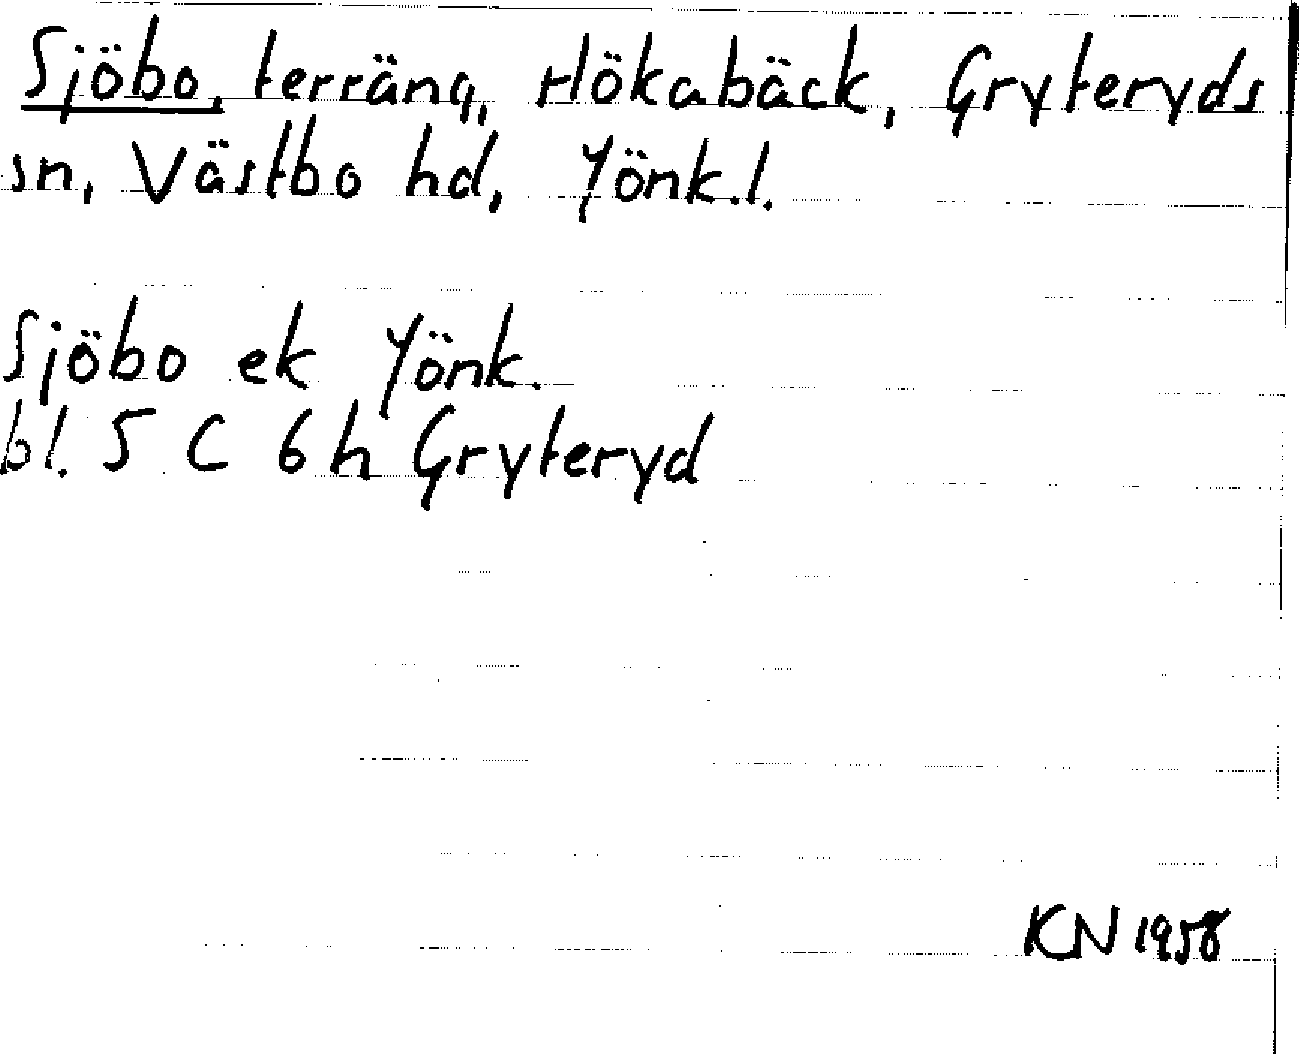 Sjöbo, terräng, Hökabäck, Gryteryds
sn, Västbo hd, Jönk.l.
Sjöbo ek Jönk.
bl. 5 C 6 h Gryteryd
KN 1958